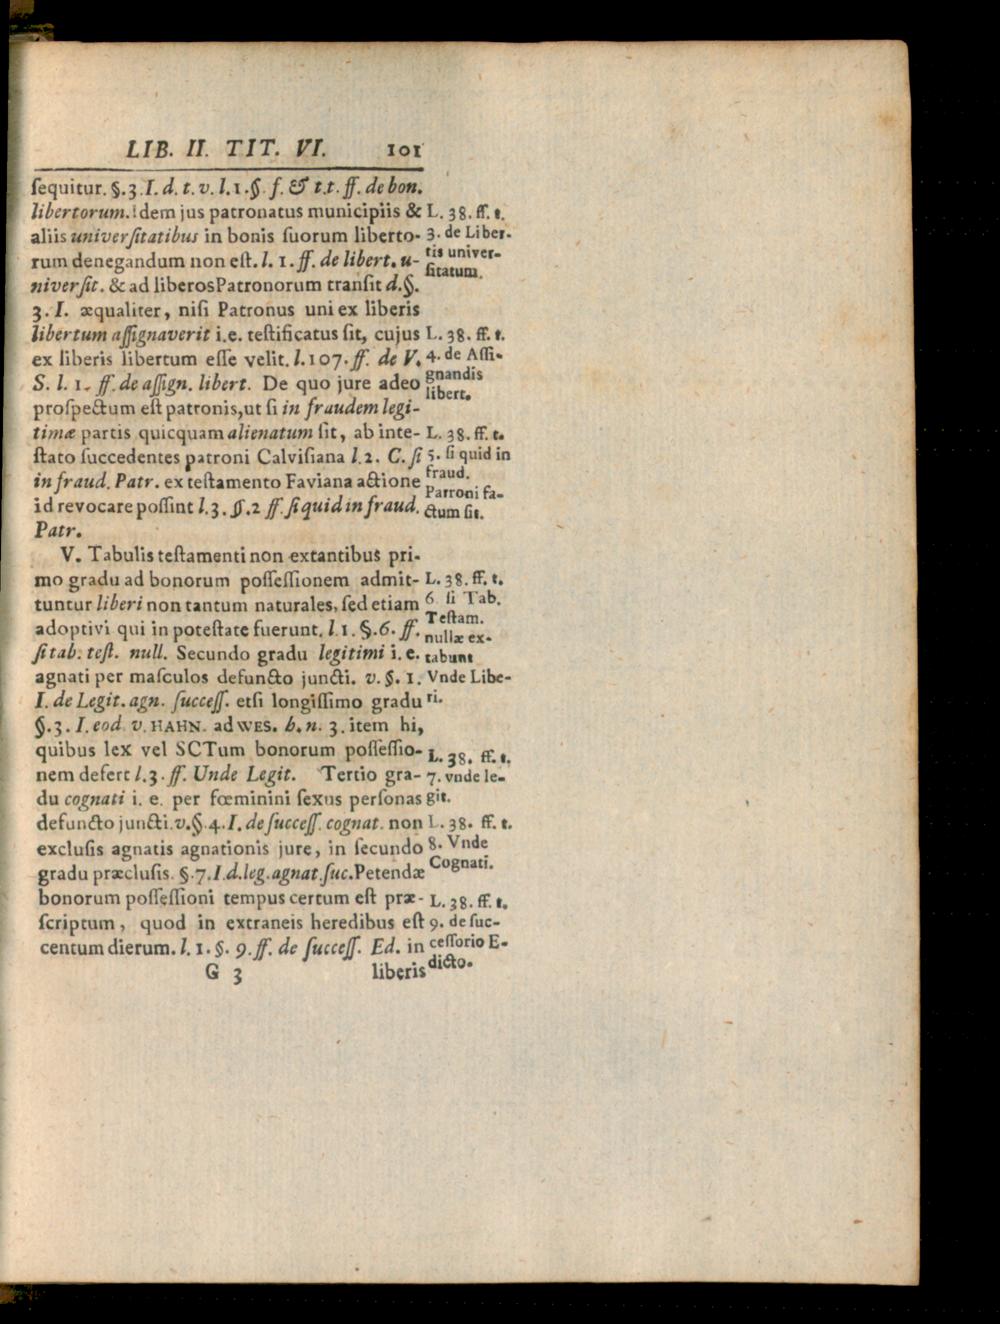 LIB. II. TIT. VI. 101
ſequitur. §.3.I. d. t. v. l.1.§. f. & t.t. ff. de bon.
libertorum. Idem jus patronatus municipiis &
aliis univerſitatibus in bonis ſuorum liberto-
rum denegandum non eſt. l. 1. ff. de libert. u-
niverſit. & ad liberos Patronorum tranſit d.§.
3. I. æqualiter, niſi Patronus uni ex liberis
libertum aſſignaverit i.e. teſtificatus ſit, cujus
ex liberis libertum eſſe velit. l.107. ff. de V.
S. l. 1. ff. de aſſign. libert. De quo jure adeo
proſpectum eſt patronis, ut ſi in fraudem legi-
timæ partis quicquam alienatum ſit, ab inte-
ſtato ſuccedentes patroni Calviſiana l.2. C. ſi
in fraud. Patr. ex teſtamento Faviana actione
id revocare poſſint l.3. §.2 ff. ſi quid in fraud.
Patr.
V. Tabulis teſtamenti non extantibus pri-
mo gradu ad bonorum poſſeſſionem admit-
tuntur liberi non tantum naturales, ſed etiam
adoptivi qui in poteſtate fuerunt. l.1. §.6. ff.
ſi tab. teſt. null. Secundo gradu legitimi i. e.
agnati per maſculos defuncto juncti. v. §. 1.
I. de Legit. agn. ſucceſſ. etſi longiſſimo gradu
§.3. I. eod. v. HAHN. ad WES. h. n. 3. item hi,
quibus lex vel SCTum bonorum poſſeſſio-
nem defert l.3. ff. Unde Legit. Tertio gra-
du cognati i. e. per fœminini ſexus perſonas
defuncto juncti. v.§.4. I. de ſucceſſ. cognat. non
excluſis agnatis agnationis jure, in ſecundo
gradu præcluſis. §.7. I.d.leg.agnat.ſuc. Petendæ
bonorum poſſeſſioni tempus certum eſt præ-
ſcriptum, quod in extraneis heredibus eſt
centum dierum. l. 1. §. 9. ff. de ſucceſſ. Ed. in
G 3 liberis
L. 38. ff. t.
3. de Liber-
tis univer-
ſitatum.
L. 38. ff. t.
4. de Aſſi-
gnandis
libert.
L. 38. ff. t.
5. ſi quid in
fraud.
Patroni fa-
ctum ſit.
L. 38. ff. t.
6 ſi Tab.
Teſtam.
nullæ ex-
tabunt
Vnde Libe-
ri.
L. 38. ff. t.
7. vnde le-
git.
L. 38. ff. t.
8. Vnde
Cognati.
L. 38. ff. t.
9. de ſuc-
ceſſorio E-
dicto.